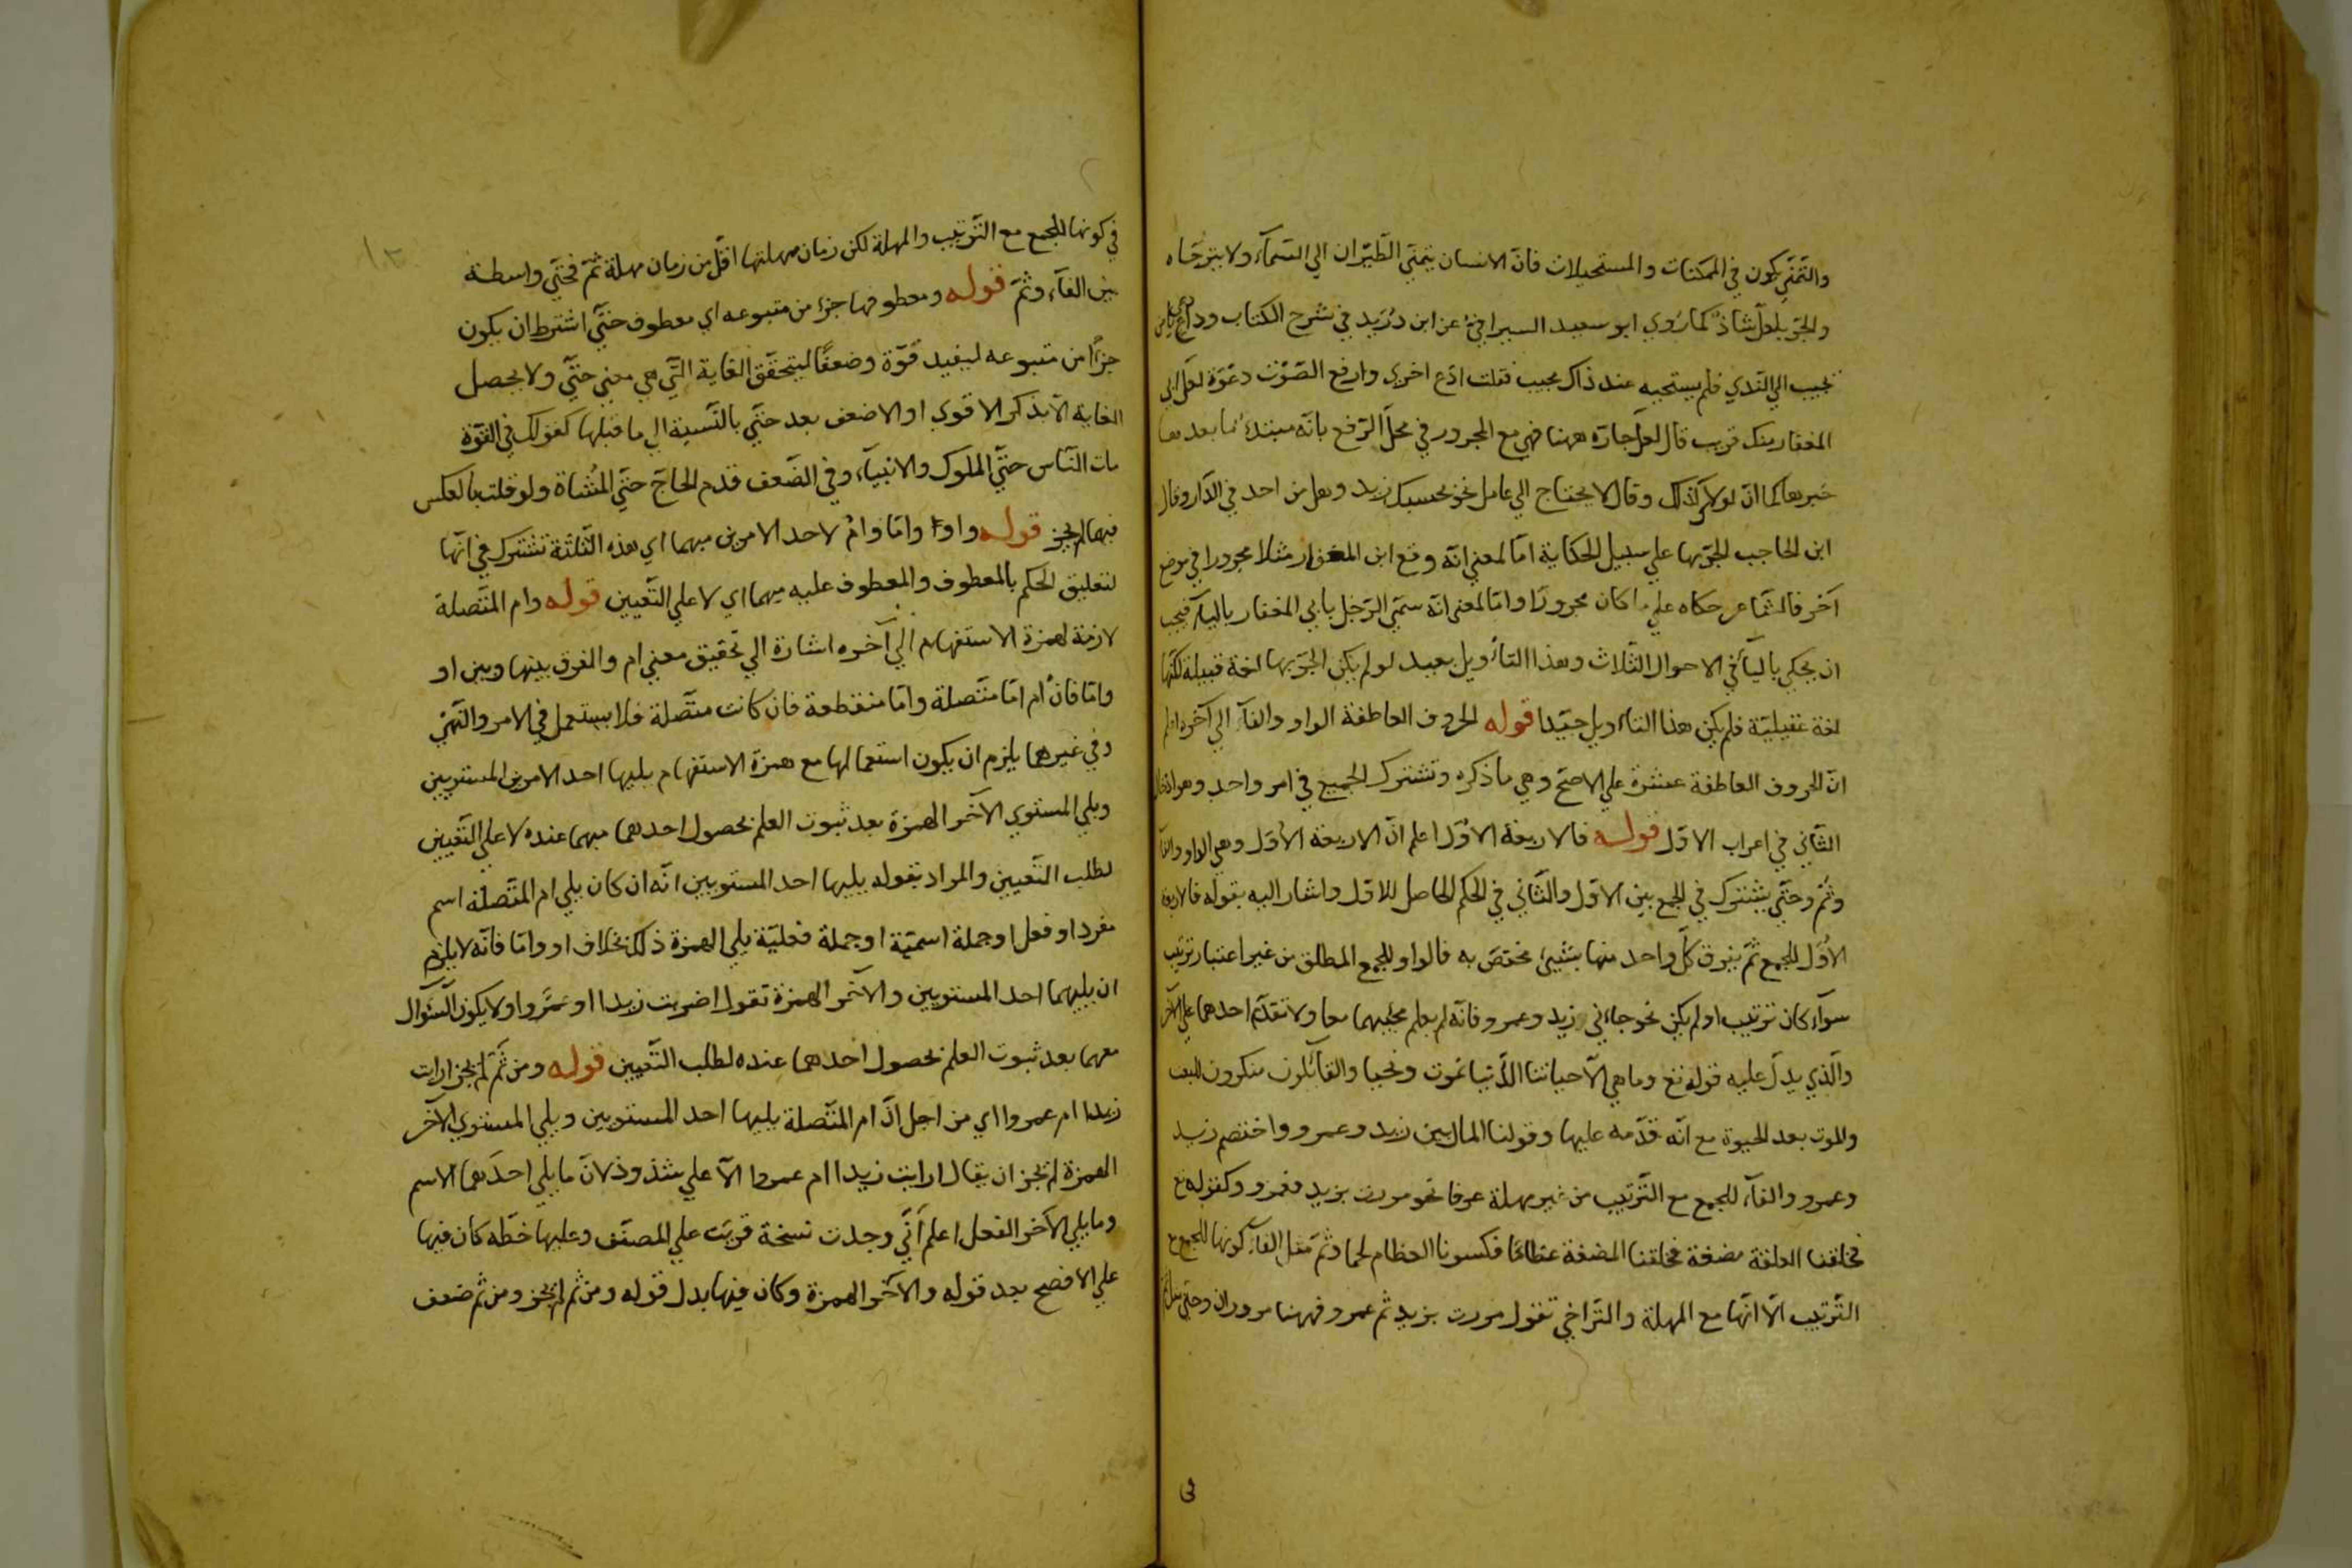 والتّمنّي يكون في الممكنات والمستحيلات فانّ الانسان يتمنّي الطّيران الي السّمآء ولا يترجّاه
والجرّ بلعلّ شاذّ كما رُوي ابو سعيد السيرافي عن ابن دُرَيد في شرح الكتاب وداع
يجيب الي النّدي فلم يستجبه عند ذاك مجيب فقلت ادع اخري وارفع الصّوت دعوة لعلّ ابي
المغوار منك قريب قال لعلّ جارّه ههنا فهي مع المجرور في محلّ الرّفع بانّه مبتدء ما بعدها
خبرها كما انّ لولاك كذلك وقال لا يحتاج الي عامل نحو بحسبك زيد وهل من احد في الدّار وقال
ابن الحاجب الجرّ بها علي سبيل الحكاية امّا لمعني انّه وقع ابن المغوار مثلا مجرورا في موضع
آخر فالشّاعر حكاه علي ما كان مجرورًا وامّا لمعني انّه سمّي الرّجل بابي المغوار باليآء فيجب
ان يحكي باليآء في الاحوال الثّلاث وهذا التأويل بعيد لو لم يكن الجرّ بها لغة قبيلة لكنّها
لغة عقيليّة فلم يكن هذا التأويل جيّدا قوله الحروف العاطفة الواو والفآء الي آخره اعلم
انّ الحروف العاطفة عشرة علي الاصحّ وهي ما ذكره وتشترك الجميع في امر واحد وهو ادخال
الثّاني في اعراب الاوّل قوله فالاربعة الاُوَل اعلم انّ الاربعة الاُوَل وهي الواو والفآء
وثمّ وحتّي يشترك في الجمع بين الاوّل والثّاني في الحكم الحاصل للاوّل واشار اليه بقوله فالاربعة
الاُوَل للجمع ثمّ يفرق كلّ واحد منها بشيئ مختصّ به فالواو للجمع المطلق من غير اعتبار ترتيب
سوآء كان ترتيب او لم يكن نحو جاءني زيد وعمرو فانّه لم يعلم مجيئهما معا ولا تقدّم احدهما علي الآخر
والّذي يدلّ عليه قوله تع وما هي الّا حياتنا الدّنيا نموت ونحيا والقآئلون منكرون للبعث
والموت بعد الحيوة مع انّه قدّمه عليها وقولنا المال بين زيد وعمرو واختصم زيد
وعمرو والفآء للجمع مع التّرتيب من غير مهلة عرفا نحو مررت بزيد فعمرو وكقوله تع
فخلقنا العلقة مضغة فخلقنا المضغة عظامًا فكسونا العظام لحما وثمّ مثل الفآء كونها للجمع مع
التّرتيب الّا انّها مع المهلة والتّراخي تقول مررت بزيد ثم عمرو فههنا مروران وحتّي مثل ثمّ
في
في كونها للجمع مع التّرتيب والمهلة لكن زمان مهلتها اقلّ من زمان مهلة ثمّ فحتّي واسطة
بين الفآء وثمّ قوله ومعطوفها جزء من متبوعه اي معطوف حتّي اشترط ان يكون
جزءًا من متبوعه ليفيد قوّة وضعفًا ليتحقّق الغاية الّتي هي معني حتّي ولا يحصل
الغاية الّا بذكر الاقوي او الاضعف بعد حتّي بالنّسبة الي ما قبلها كقولك في القوّة
مات النّاس حتّي الملوك والانبيآء وفي الضّعف قدم الحاجّ حتّي المُشاة ولو قلت بالعكس
فيهما لم يجز قوله واو وامّا وامْ لاحد الامرين مبهما اي هذه الثّلثة تشترك في انّها
لتعليق الحكم بالمعطوف والمعطوف عليه مبهما اي لا علي التّعيين قوله وام المتّصلة
لازمة لهمزة الاستفهام الي آخره اشارة الي تحقيق معني ام والفرق بينها وبين او
وامّا فانّ ام امّا متّصلة وامّا منقطعة فان كانت متّصلة فلا يستعمل في الامر والنّهي
وفي غيرهما يلزم ان يكون استعمالها مع همزة الاستفهام يليها احد الامرين المستويين
ويلي المستوي الآخر الهمزة بعد ثبوت العلم بحصول احدهما مبهما عنده لا علي التّعيين
لطلب التّعيين والمراد بقوله يليها احد المستويين انّه ان كان يلي ام المتّصلة اسم
مفرد او فعل او جملة اسميّة او جملة فعليّة يلي الهمزة ذلك بخلاف او وامّا فانّه لا يلزم
ان يليهما احد المستويين والآخر الهمزة تقول اضربت زيدا او عمروا ولا يكون السّؤال
معهما بعد ثبوت العلم بحصول احدهما عنده لطلب التّعيين قوله ومن ثَمّ لم يجز ارايت
زيدا ام عمروا اي من اجل انّ ام المتّصلة يليها احد المستويين ويلي المستوي الآخر
الهمزة لم يجز ان يقال ارايت زيدا ام عمروا الّا علي شذوذ لانّ ما يلي احدهما الاسم
وما يلي الآخر الفعل اعلم انّي وجدت نسخة قريت علي المصنّف وعليها خطّه كان فيها
علي الافصح بعد قوله والآخر الهمزة وكان فيها بدل قوله ومن ثم لم يجز ومن ثم ضعف